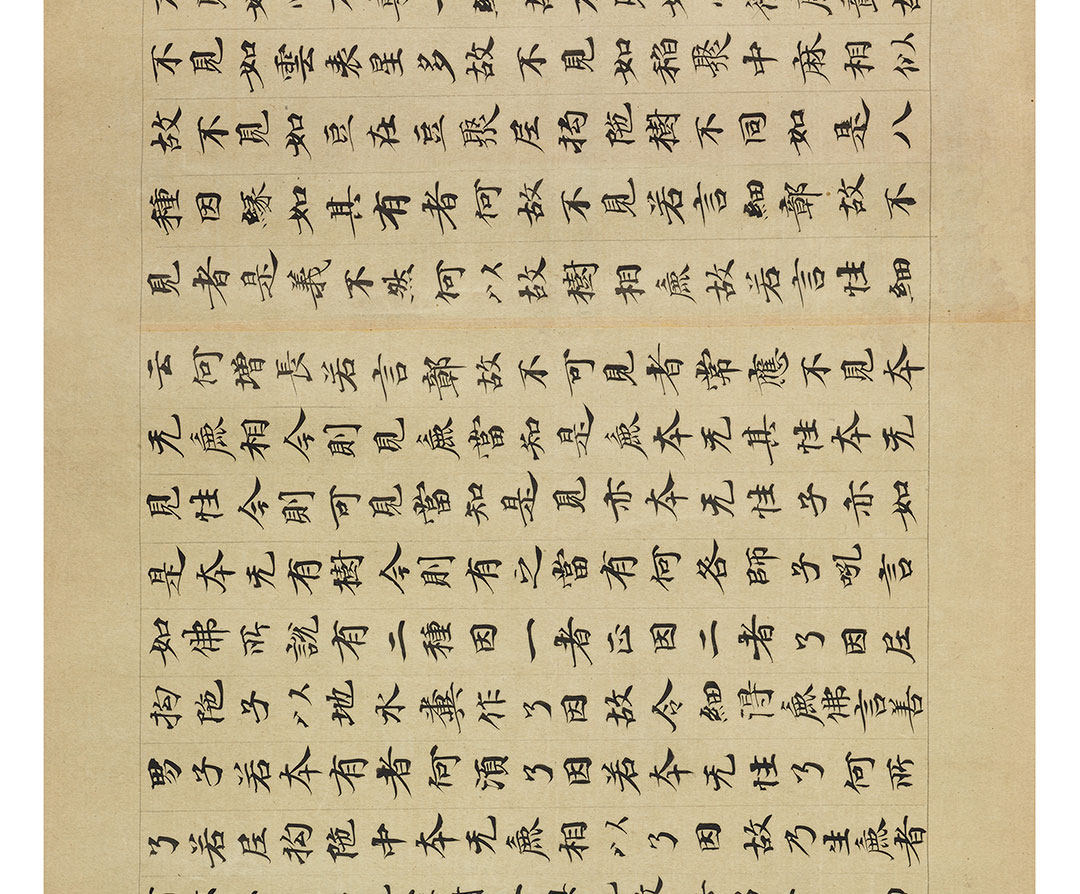 不見如雲表星多故不見如稻聚中麻相似
故不見如豆在豆聚尼拘陁樹不同如是八
種因緣如其有者何故不見若言細鄣故不
見者是義不然何以故樹相麁故若言性細
云何增長若言鄣故不可見者常應不見本
无麁相今則見麁當知是麁本无其性本无
見性今則可見當知是見亦本无性子亦如
是本无有樹今則有之當有何咎師子吼言
如佛所說有二種因一者正因二者了因尼
拘陁子以地水糞作了因故令細得麁佛言善
男子若本有者何須了因若本无性了何所
了若尼拘陁中本无麁相以了因故乃生麁者